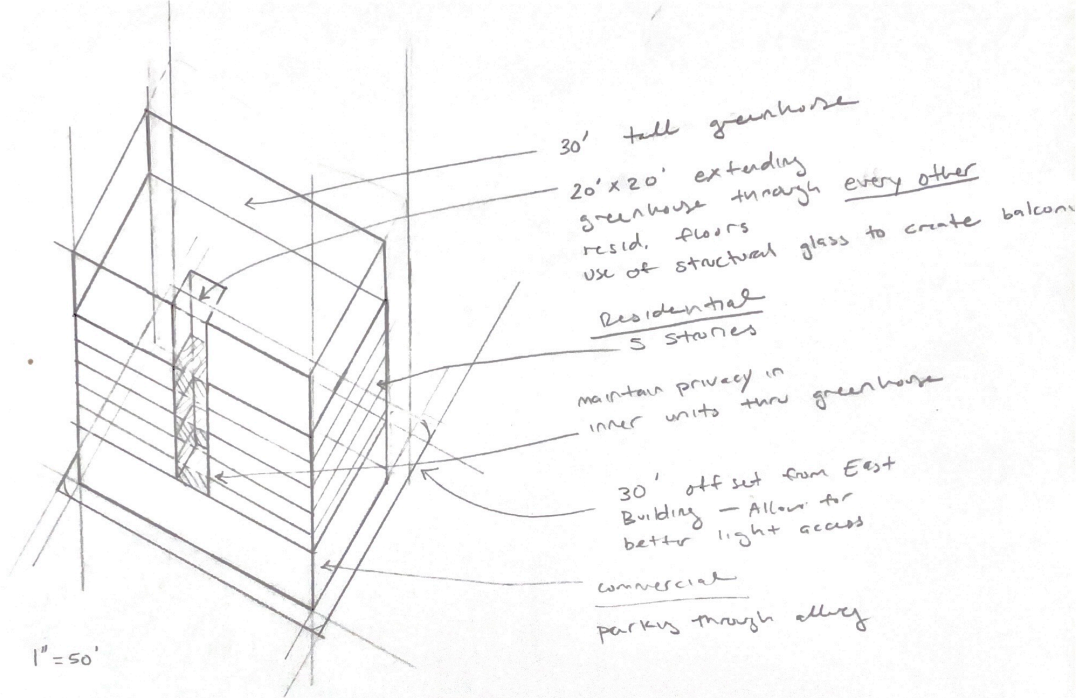 30' tall greenhouse
20' x 20' extending
greenhouse through every other
resid. floors
use of structural glass to create balcon
Residential
5 stories
maintain privacy in
inner units thru greenhouse
30' offset from East
Building — Allow for
better light access
commercial
parking through alley
1" = 50'